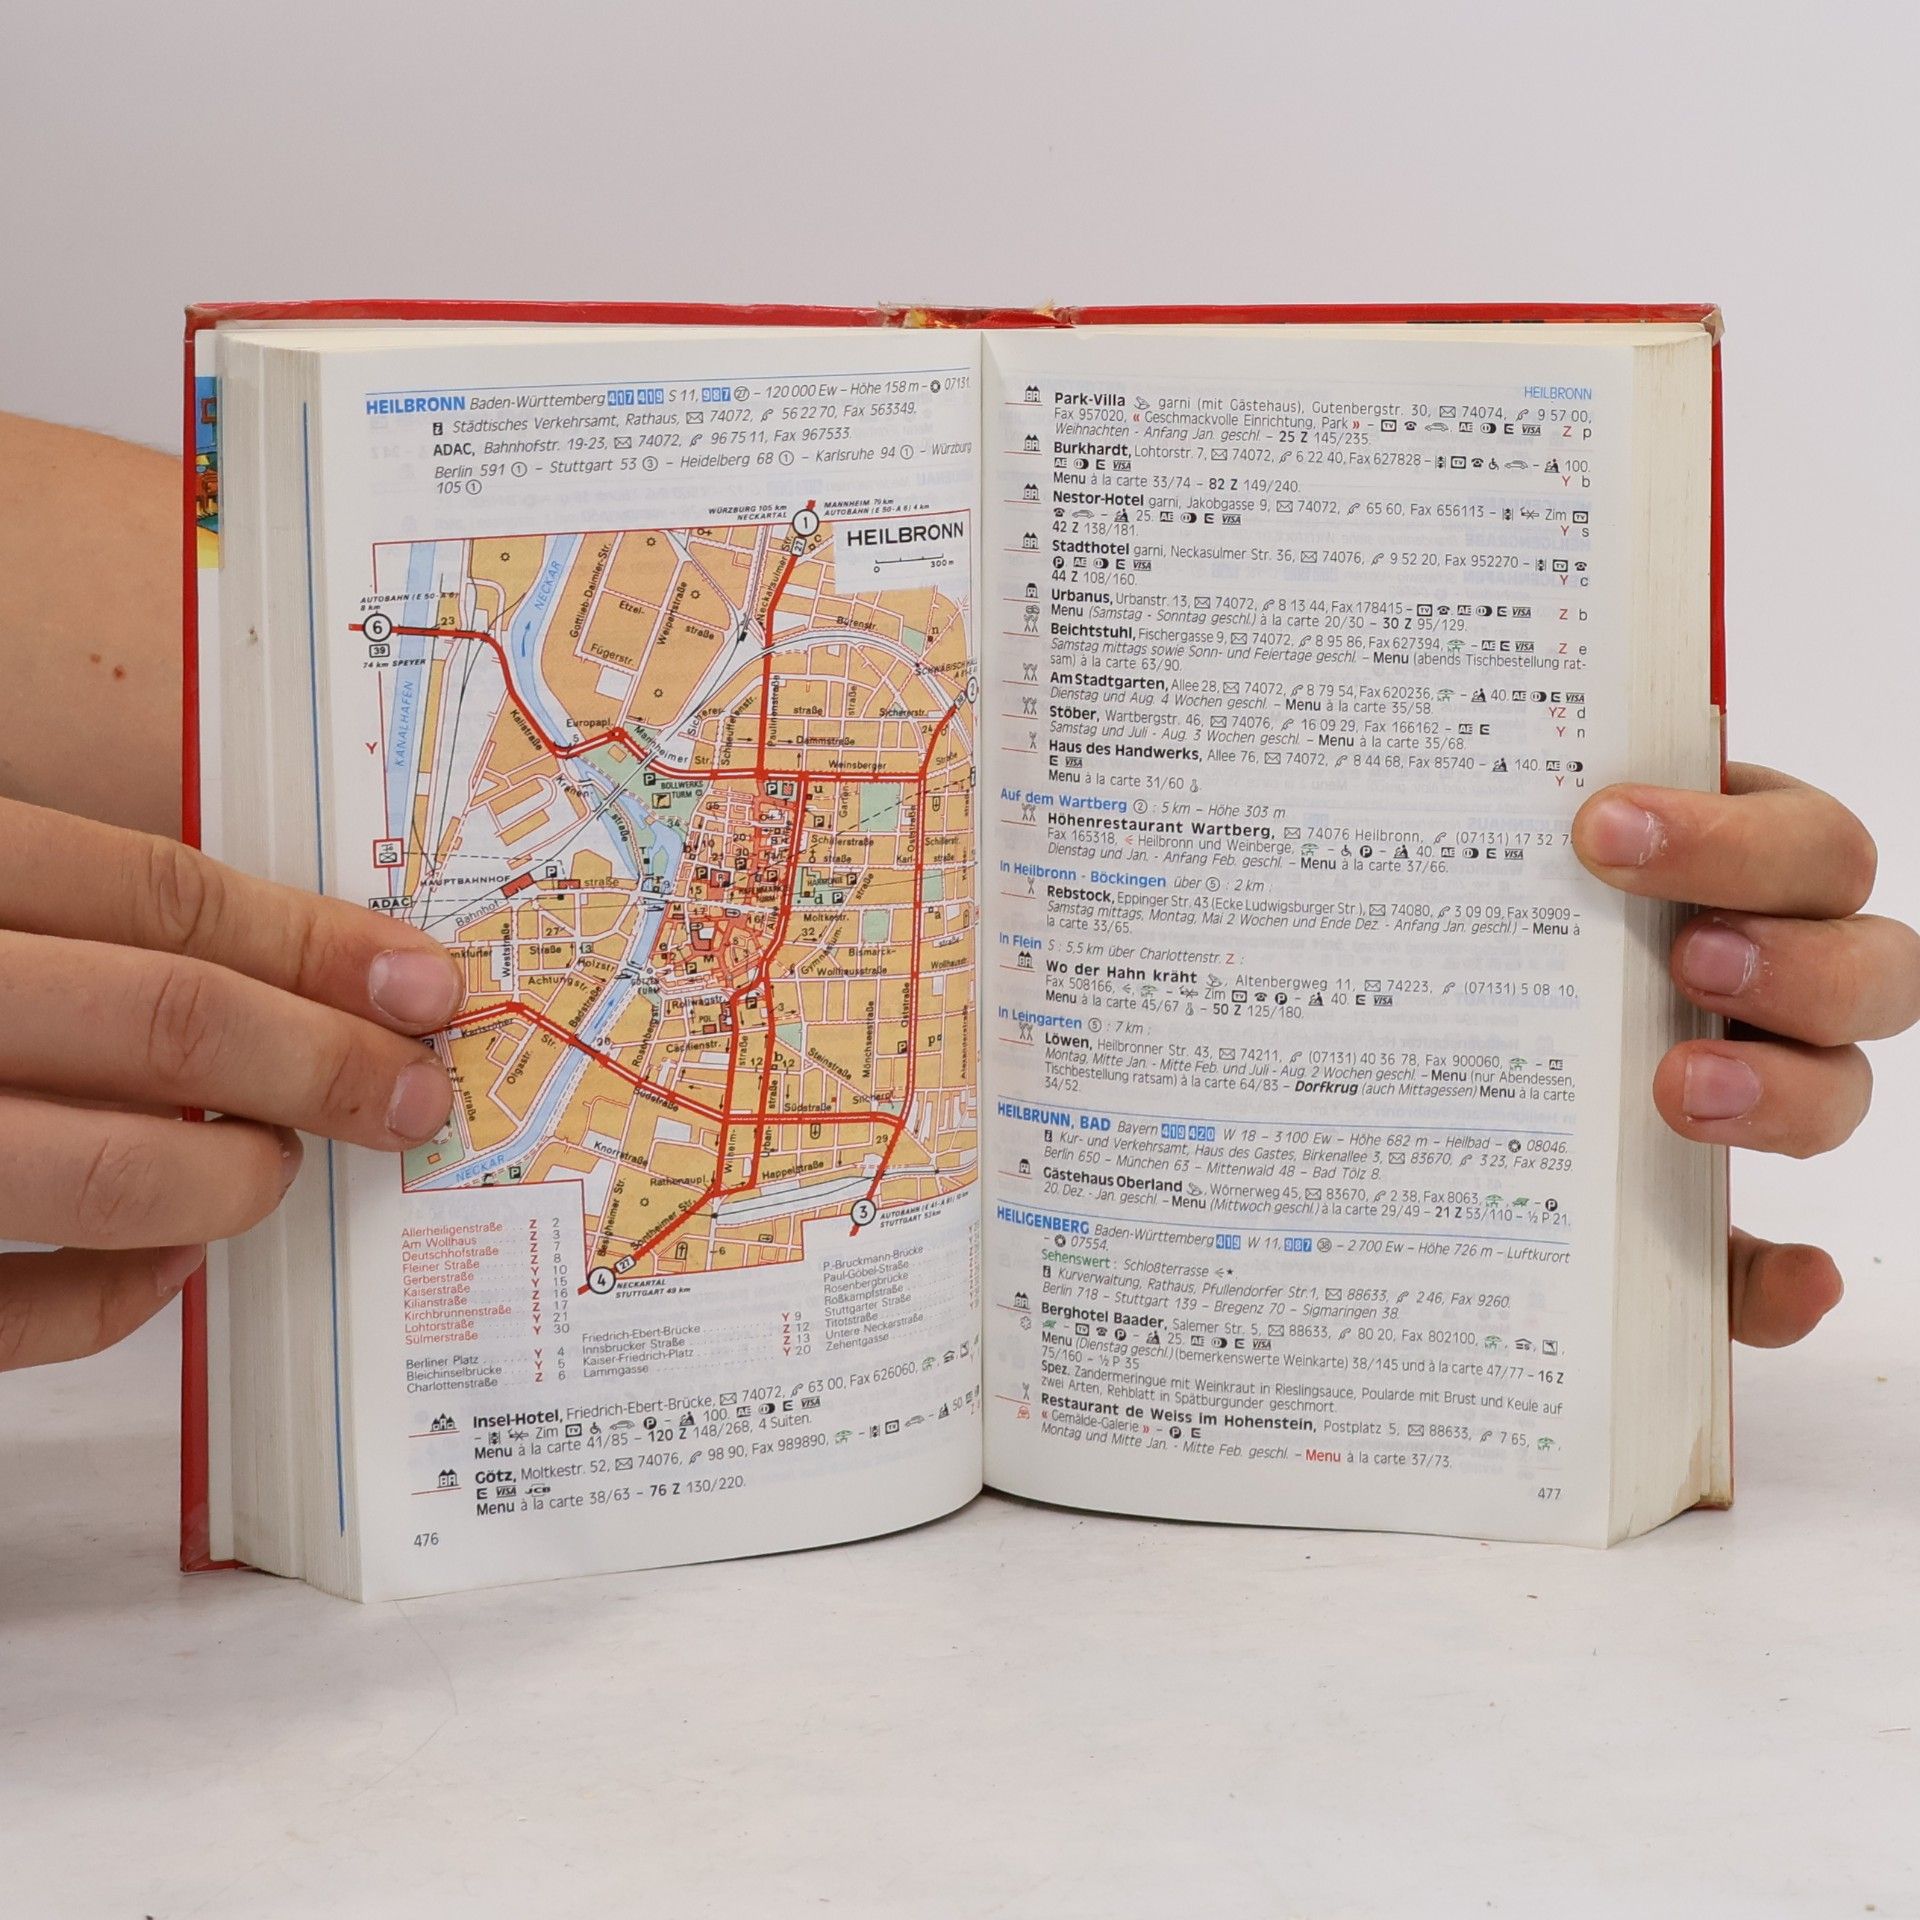 HEILBRONN Baden-Württemberg 417 419 S 11, 987 27 – 120 000 Ew – Höhe 158 m – 07131.
Städtisches Verkehrsamt, Rathaus, 74072, 56 22 70, Fax 563349.
ADAC, Bahnhofstr. 19-23, 74072, 96 75 11, Fax 967533.
Berlin 591 1 – Stuttgart 53 3 – Heidelberg 68 1 – Karlsruhe 94 1 – Würzburg
105 1
WÜRZBURG 105 km
NECKARTAL
MANNHEIM 79 km
AUTOBAHN (E 50-A 6) 4 km
HEILBRONN
0 300 m
AUTOBAHN (E 50-A 6)
8 km
6
39
74 km SPEYER
23
KANALHAFEN
NECKAR
Gottlieb-Daimler-Str.
Etzel-
straße
Weipertstraße
Fügerstr.
Neckarsulmer Str.
Europapl.
Kalistraße
Mannheimer Str.
Dammstraße
Weinsberger
Straße
BOLLWERKS
TURM
Kranen-
straße
HAUPTBAHNHOF
ADAC
Bahnhof-
straße
HARMONIE
Moltkestr.
Bismarck-
Wollhausstraße
Gymnasium-
Weststraße
Achtungstr.
Holzstr.
Badstraße
Rollwagstr.
POL.
Karlsruher
Str.
Olgastr.
Rosenbergstr.
Cäcilienstr.
Steinstraße
Mönchseestraße
Oststraße
Südstraße
Südstraße
Knorrstraße
NECKAR
Rathenaupl.
Happelstraße
Wilhelm-
Urban-
Besigheimer Str.
Sontheimer Str.
3
AUTOBAHN (E 41-A 81) 10 km
STUTTGART 53 km
4
NECKARTAL
STUTTGART 49 km
Allerheiligenstraße Z 2
Am Wollhaus Z 3
Deutschhofstraße Z 7
Fleiner Straße Z 8
Gerberstraße Y 10
Kaiserstraße Y 15
Kilianstraße Z 16
Kirchbrunnenstraße Z 17
Lohtorstraße Y 21
Sülmerstraße Y 30
Berliner Platz Y 4
Bleichinselbrücke Y 5
Charlottenstraße Z 6
Friedrich-Ebert-Brücke Y 9
Innsbrucker Straße Z 12
Kaiser-Friedrich-Platz Z 13
Lammgasse Y 20
P.-Bruckmann-Brücke
Paul-Göbel-Straße
Rosenbergbrücke
Roßkampfstraße
Stuttgarter Straße
Titotstraße
Untere Neckarstraße
Zehentgasse
Insel-Hotel, Friedrich-Ebert-Brücke, 74072, 63 00, Fax 626060,
– Zim TV P – 100. AE E VISA
Menu à la carte 41/85 – 120 Z 148/268, 4 Suiten.
Götz, Moltkestr. 52, 74076, 98 90, Fax 989890, – TV – 50
E VISA JCB
Menu à la carte 38/63 – 76 Z 130/220.
476
HEILBRONN
Park-Villa garni (mit Gästehaus), Gutenbergstr. 30, 74074, 9 57 00,
Fax 957020, « Geschmackvolle Einrichtung, Park » – TV AE E VISA
Weihnachten - Anfang Jan. geschl. – 25 Z 145/235. Z p
Burkhardt, Lohtorstr. 7, 74072, 6 22 40, Fax 627828 – TV – 100.
AE E VISA
Menu à la carte 33/74 – 82 Z 149/240. Y b
Nestor-Hotel garni, Jakobgasse 9, 74072, 65 60, Fax 656113 – Zim TV
– 25. AE E VISA
42 Z 138/181. Y s
Stadthotel garni, Neckasulmer Str. 36, 74076, 9 52 20, Fax 952270 – TV
P AE E VISA
44 Z 108/160. Y c
Urbanus, Urbanstr. 13, 74072, 8 13 44, Fax 178415 – TV AE E VISA
Menu (Samstag - Sonntag geschl.) à la carte 20/30 – 30 Z 95/129. Z b
Beichtstuhl, Fischergasse 9, 74072, 8 95 86, Fax 627394, – AE E VISA
Samstag mittags sowie Sonn- und Feiertage geschl. – Menu (abends Tischbestellung rat-
sam) à la carte 63/90. Z e
Am Stadtgarten, Allee 28, 74072, 8 79 54, Fax 620236, – 40. AE E VISA
Dienstag und Aug. 4 Wochen geschl. – Menu à la carte 35/58. YZ d
Stöber, Wartbergstr. 46, 74076, 16 09 29, Fax 166162 – AE E
Samstag und Juli - Aug. 3 Wochen geschl. – Menu à la carte 35/68. Y n
Haus des Handwerks, Allee 76, 74072, 8 44 68, Fax 85740 – 140. AE
E VISA
Menu à la carte 31/60. Y u
Auf dem Wartberg 2 : 5 km – Höhe 303 m
Höhenrestaurant Wartberg, 74076 Heilbronn, (07131) 17 32 7
Fax 165318, Heilbronn und Weinberge, – P – 40. AE E VISA
Dienstag und Jan. - Anfang Feb. geschl. – Menu à la carte 37/66.
In Heilbronn - Böckingen über 5 : 2 km :
Rebstock, Eppinger Str. 43 (Ecke Ludwigsburger Str.), 74080, 3 09 09, Fax 30909 –
Samstag mittags, Montag, Mai 2 Wochen und Ende Dez. - Anfang Jan. geschl.) – Menu à
la carte 33/65.
In Flein S : 5,5 km über Charlottenstr. Z :
Wo der Hahn kräht, Altenbergweg 11, 74223, (07131) 5 08 10,
Fax 508166, – Zim TV P – 40. E VISA
Menu à la carte 45/67 – 50 Z 125/180.
In Leingarten 5 : 7 km :
Löwen, Heilbronner Str. 43, 74211, (07131) 40 36 78, Fax 900060, – AE
Montag, Mitte Jan. - Mitte Feb. und Juli - Aug. 2 Wochen geschl. – Menu (nur Abendessen,
Tischbestellung ratsam) à la carte 64/83 – Dorfkrug (auch Mittagessen) Menu à la carte
34/52.
HEILBRUNN, BAD Bayern 419 420 W 18 – 3 100 Ew – Höhe 682 m – Heilbad – 08046.
Kur- und Verkehrsamt, Haus des Gastes, Birkenallee 3, 83670, 3 23, Fax 8239.
Berlin 650 – München 63 – Mittenwald 48 – Bad Tölz 8.
Gästehaus Oberland, Wörnerweg 45, 83670, 2 38, Fax 8063, – P
20. Dez. - Jan. geschl. – Menu (Mittwoch geschl.) à la carte 29/49 – 21 Z 53/110 – ½ P 21.
HEILIGENBERG Baden-Württemberg 419 W 11, 987 38 – 2 700 Ew – Höhe 726 m – Luftkurort
– 07554.
Sehenswert : Schloßterrasse ★
Kurverwaltung, Rathaus, Pfullendorfer Str.1, 88633, 2 46, Fax 9260.
Berlin 718 – Stuttgart 139 – Bregenz 70 – Sigmaringen 38.
Berghotel Baader, Salemer Str. 5, 88633, 80 20, Fax 802100,
– TV P – 25. AE E VISA
Menu (Dienstag geschl.) (bemerkenswerte Weinkarte) 38/145 und à la carte 47/77 – 16 Z
75/160 – ½ P 35
Spez. Zandermeringue mit Weinkraut in Rieslingsauce, Poularde mit Brust und Keule auf
zwei Arten, Rehblatt in Spätburgunder geschmort.
Restaurant de Weiss im Hohenstein, Postplatz 5, 88633, 7 65,
« Gemälde-Galerie » – P E
Montag und Mitte Jan. - Mitte Feb. geschl. – Menu à la carte 37/73.
477